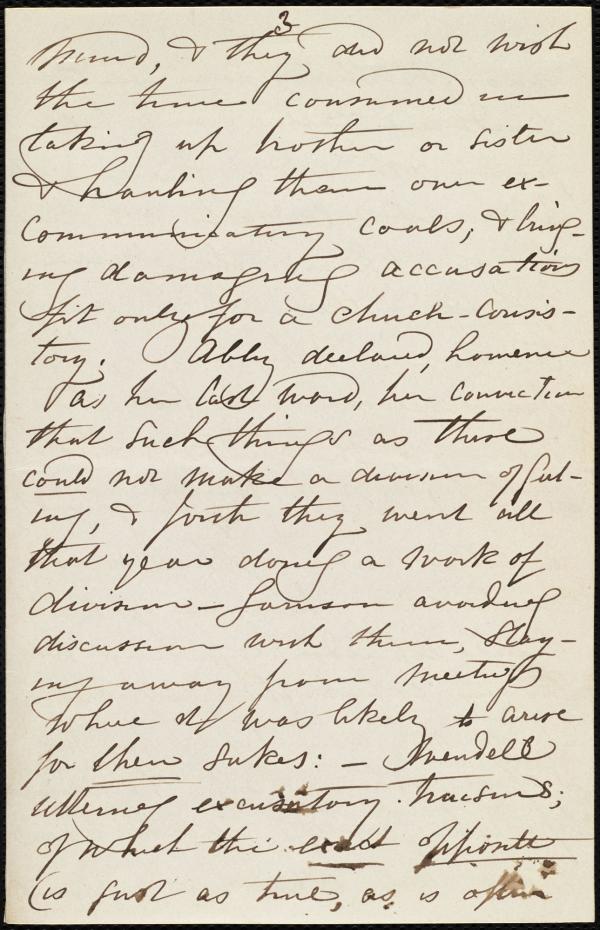 3
friend, & they did not wish
the time consumed in
taking up brother or sister
& hauling them over ex-
communicating coals, & bring-
ing damaging accusations
fit only for a church-consis-
tory. Abby declared, however
as her last word, her conviction
that such things as these
could not make a division of feel-
ing, & forth they went all
that year doing a work of
division - Garrison avoiding
discussion with them, stay-
ing away from meetings
where it was likely to arise
for their sakes: - Wendell
uttering excusatory truisms;
of which the exact opposite
(is just as true, as is often